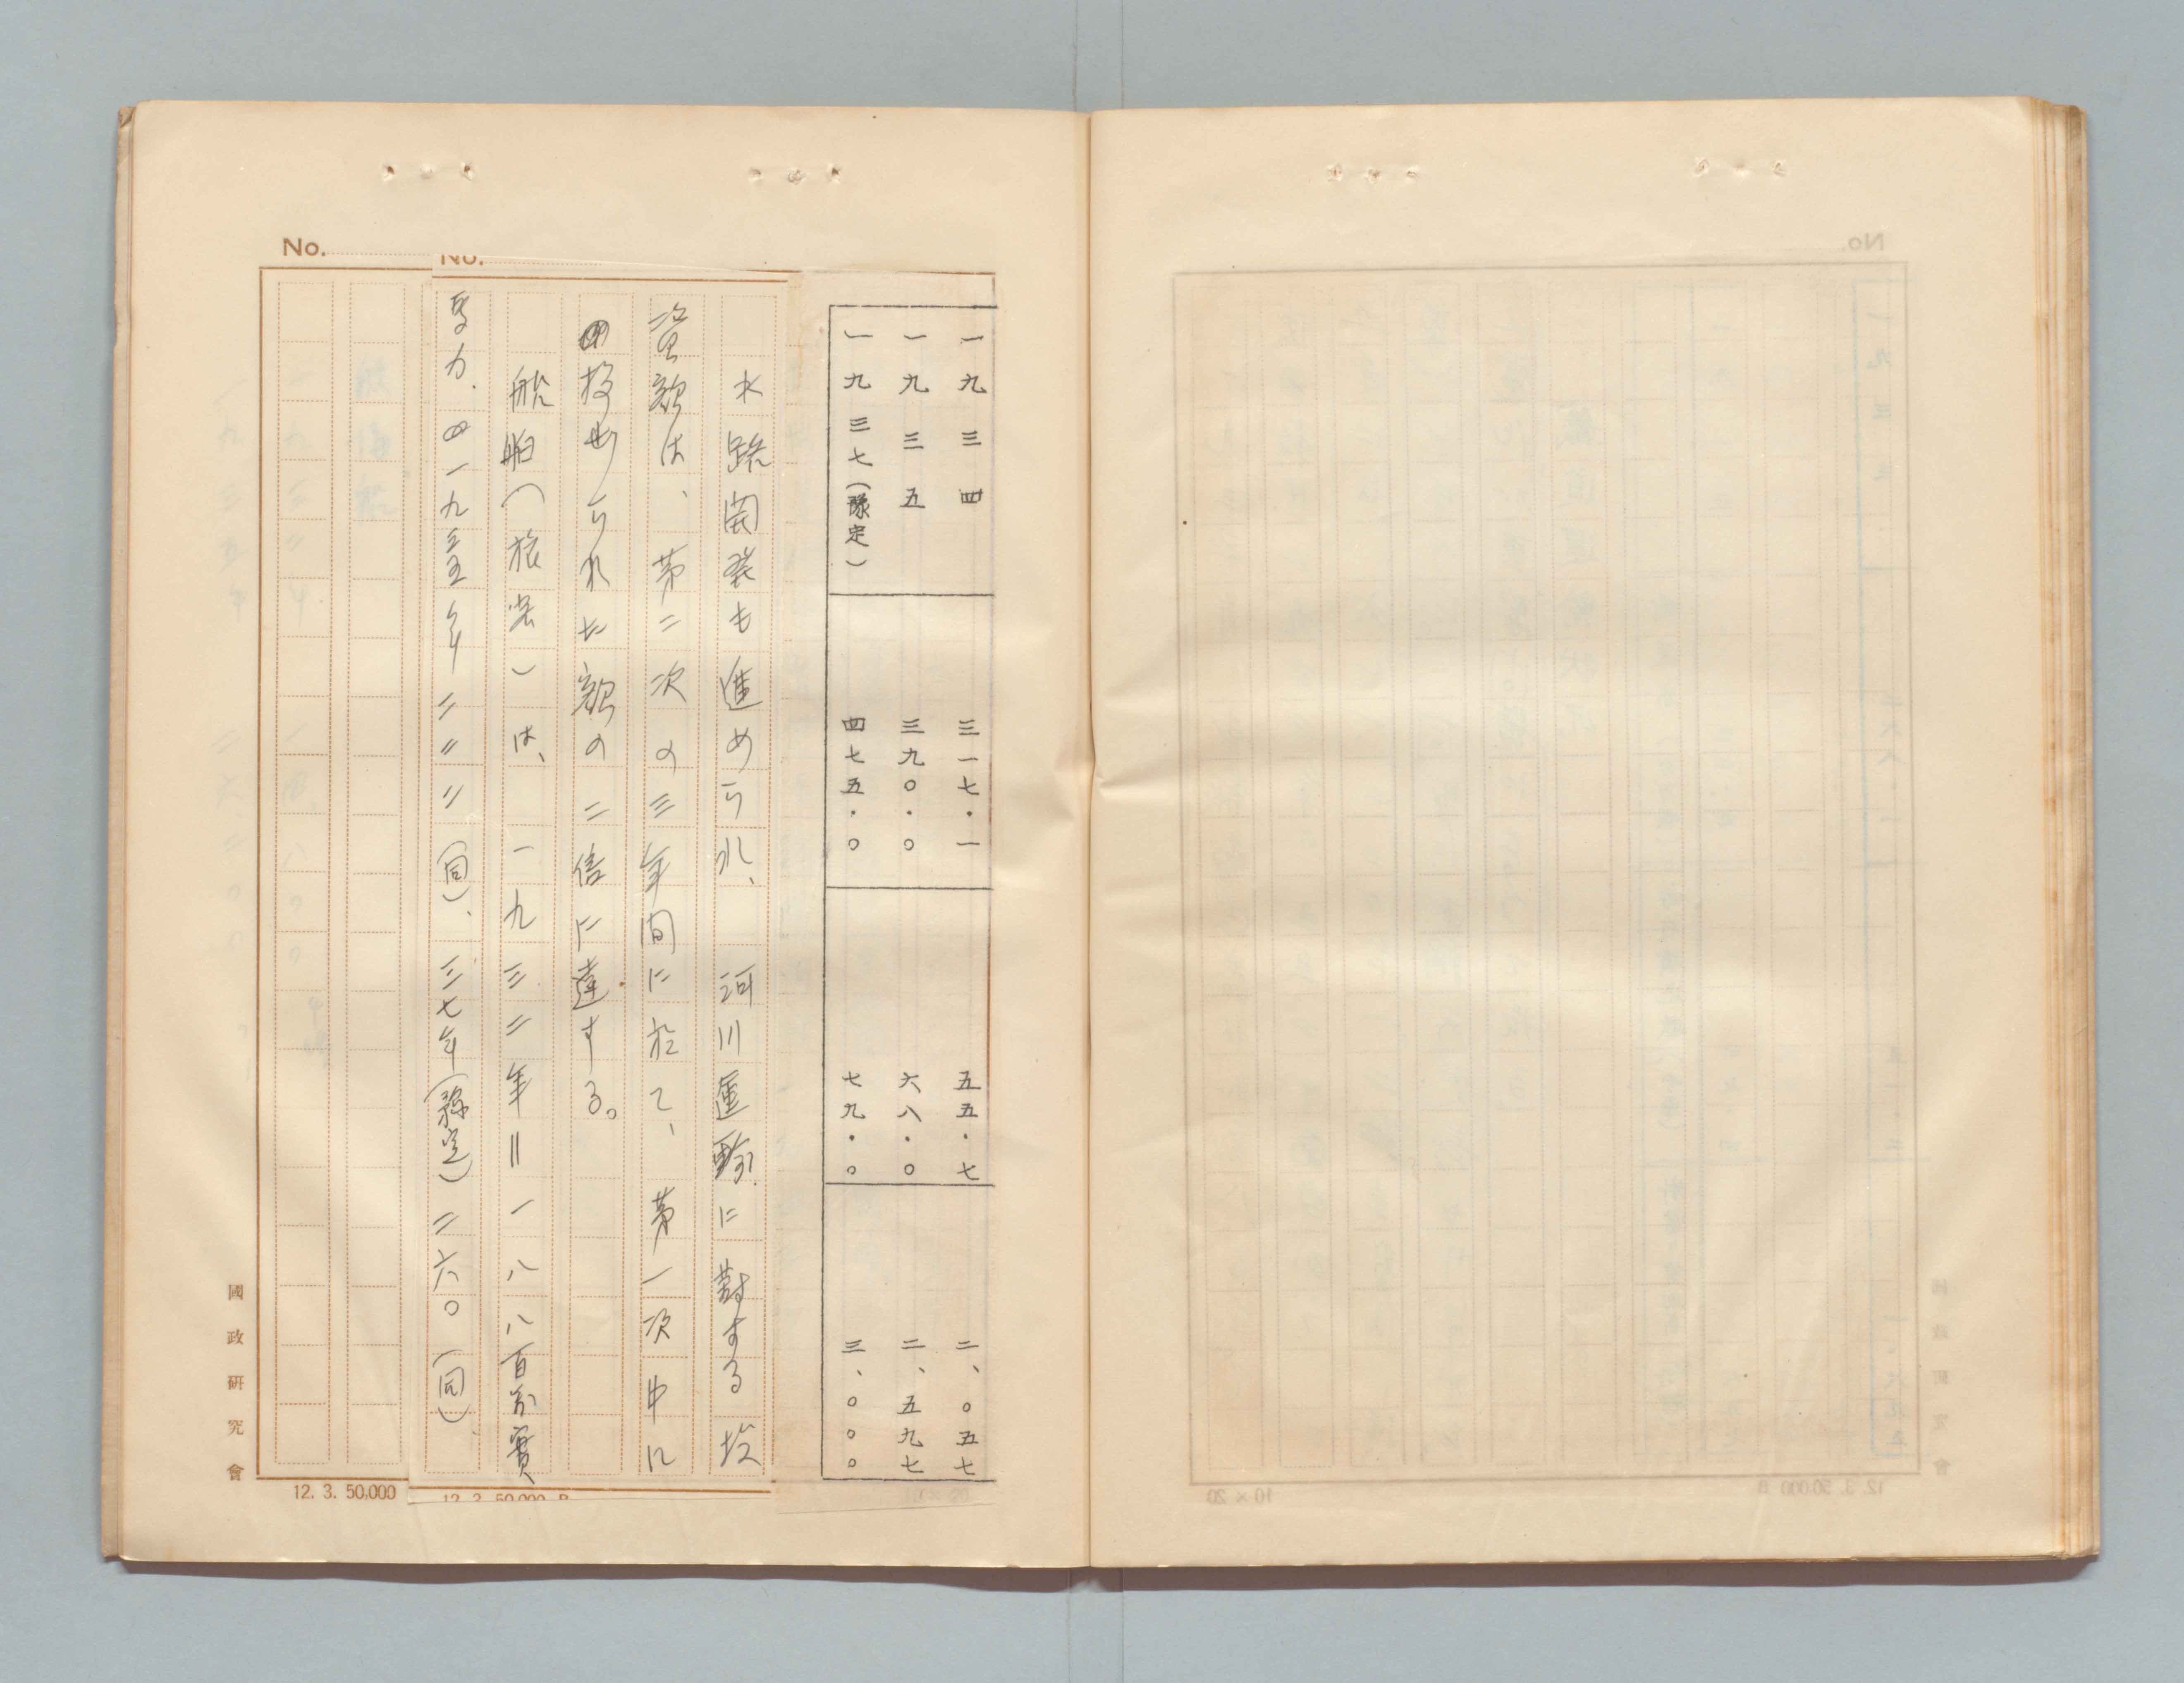 No.
No.
一九三四 三一七・一 五五・七 二、〇五七
一九三五 三九〇・〇 六八・〇 二、五九七
一九三七(豫定) 四七五・〇 七九・〇 三、〇〇〇
水路開発も進められ、河川運輸に對する投
資額は、第二次の三年間に於て、第一次中に
投ぜられた額の二倍に達する。
船舶(旅客)は、一九三二年=一八八百万實
馬力、一九三五年=〃二(同)、三七年(豫定)=二六〇(同)
國政研究會
12. 3. 50,000
12. 3. 50,000 B